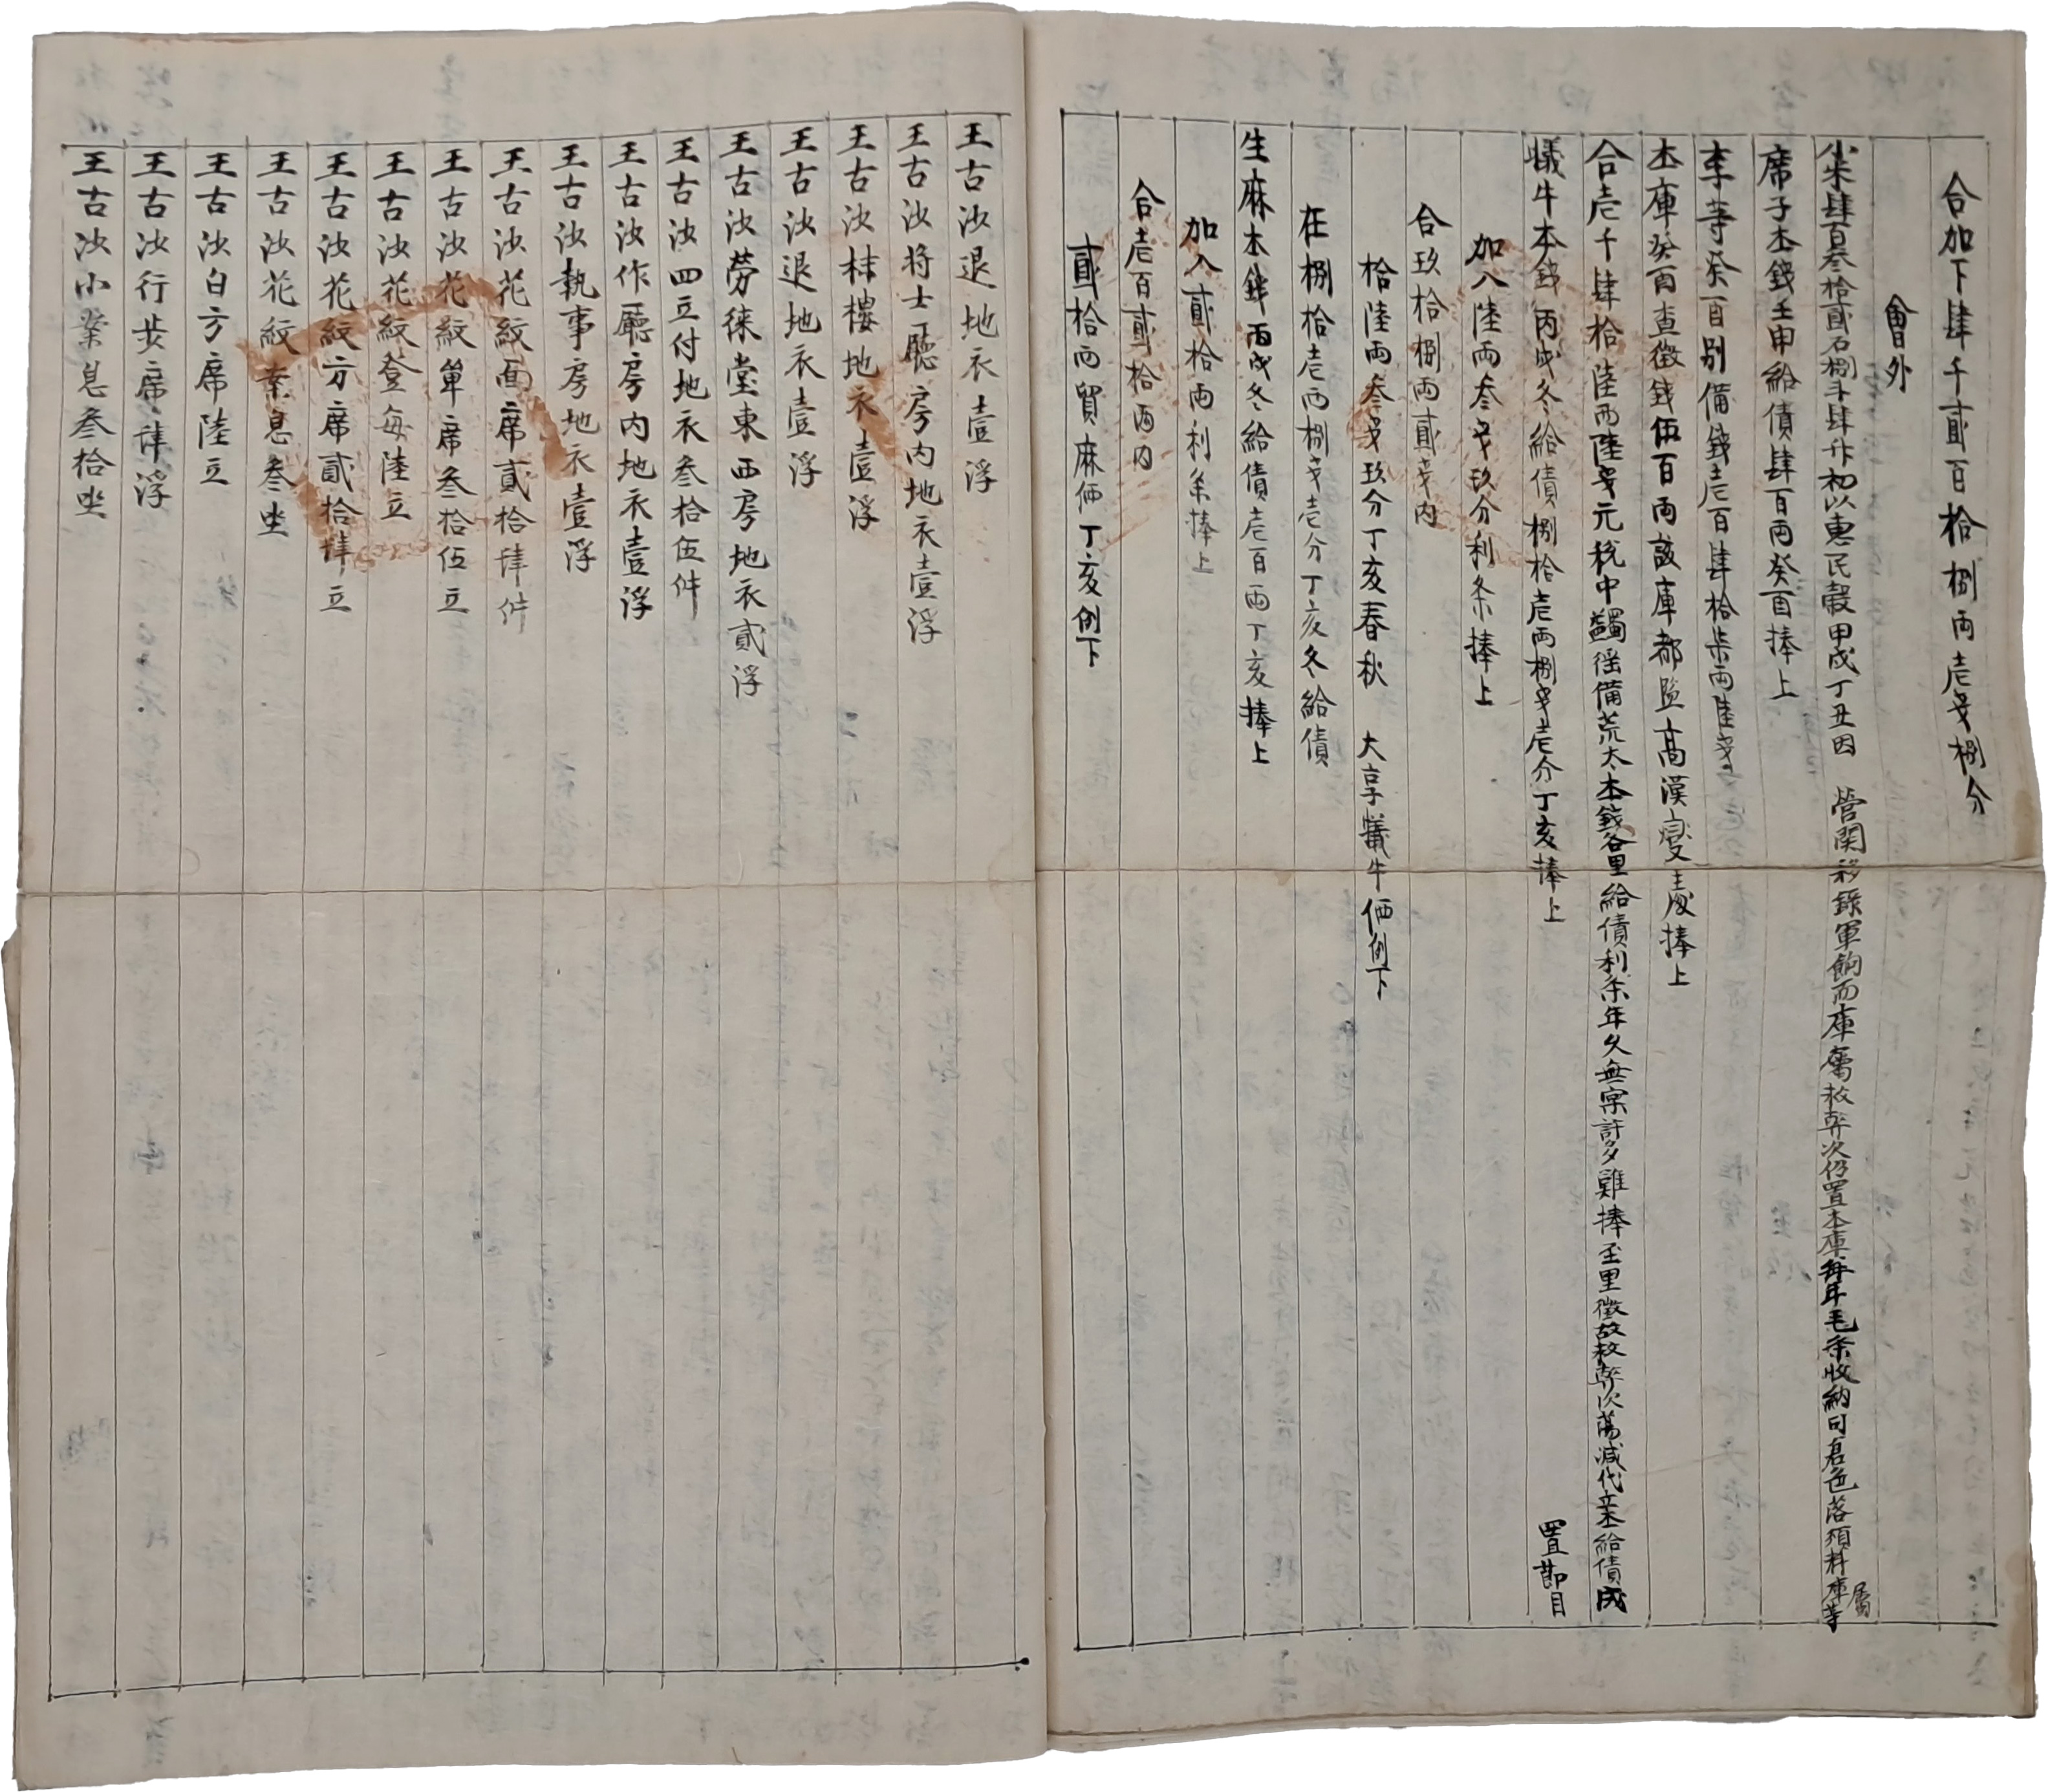 合加下肆千貳百拾捌両壱戔捌分
會外
小米肆百叄拾貳石捌斗肆升初以惠民穀甲戌丁丑因 營関移錄軍餉而庫屬救弊次仍置本庫每年毛条收納司倉色落預料庫等
屬
席子本錢壬申給債肆百両癸酉捧上
李等癸酉別備錢壱百肆拾柒両陸戔
本庫癸酉查徵錢伍百両該庫都監高漢燮處捧上
合壱千肆拾陸両陸戔元稅中蠲徭備荒太本錢各里給債利条年久無實許多難捧至里徵故救弊次蕩減代業給債成
置節目
犧牛本錢丙戌冬給債捌拾壱両捌戔壱分丁亥捧上
加入陸両叄戔玖分利条捧上
合玖拾捌両貳戔內
拾陸両叄戔玖分丁亥春秋 大享犧牛価例下
在捌拾壱両捌戔壱分丁亥冬給債
生麻本錢丙戌冬給債壱百両丁亥捧上
加入貳拾両利条捧上
合壱百貳拾両內
貳拾両貿麻価丁亥例下
王古汝退地衣壹浮
王古汝將士廳房內地衣壹浮
王古汝樓地衣壹浮
王古汝退地衣壹浮
王古汝勞徠堂東西房地衣貳浮
王古汝四立付地衣叄拾伍件
王古汝作廳房內地衣壹浮
王古汝執事房地衣壹浮
王古汝花紋面席貳拾肆件
王古汝花紋單席叄拾伍立
王古汝花紋登每陸立
王古汝花紋方席貳拾肆立
王古汝花紋案息叄坐
王古汝白方席陸立
王古汝行步席肆浮
王古汝小案息叄拾坐